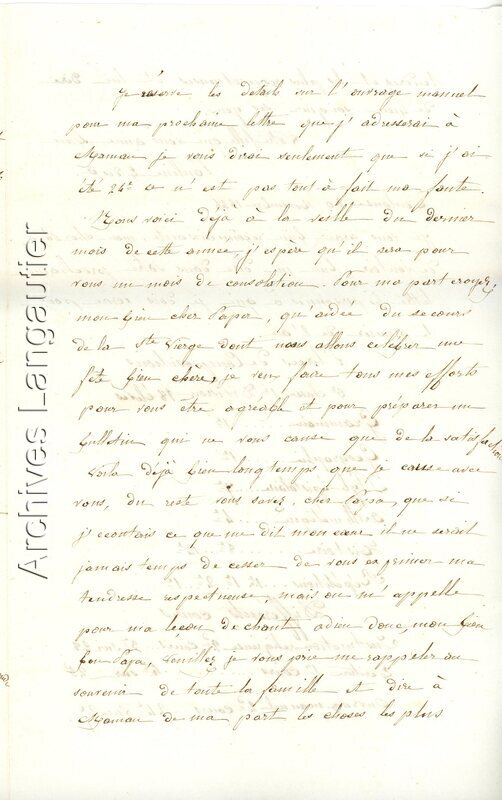 Je réserve les détails sur l'ouvrage manuel
pour ma prochaine lettre que j'adresserai à
Maman je vous dirai seulement que si j'ai
été 24e ce n'est pas tout à fait ma faute.
Nous voici déjà à la veille du dernier
mois de cette année, j'espère qu'il sera pour
vous un mois de consolation. Pour ma part croyez,
mon bien cher Papa, qu'aidée du secours
de la Ste Vierge dont nous allons célébrer une
fête bien chère, je vais faire tous mes efforts
pour vous être agréable et pour préparer un
bulletin qui ne vous cause que de la satisfaction
Voilà déjà bien longtemps que je cause avec
vous, du reste vous savez, cher Papa, que si
j'écoutais ce que me dit mon cœur il ne serait
jamais temps de cesser de vous exprimer ma
tendresse respectueuse, mais on m'appelle
pour ma leçon de chant adieu donc, mon bien
bon Papa, Veuillez je vous prie me rappeler au
souvenir de toute la famille et dire à
Maman de ma part les choses les plus
Archives Langautier